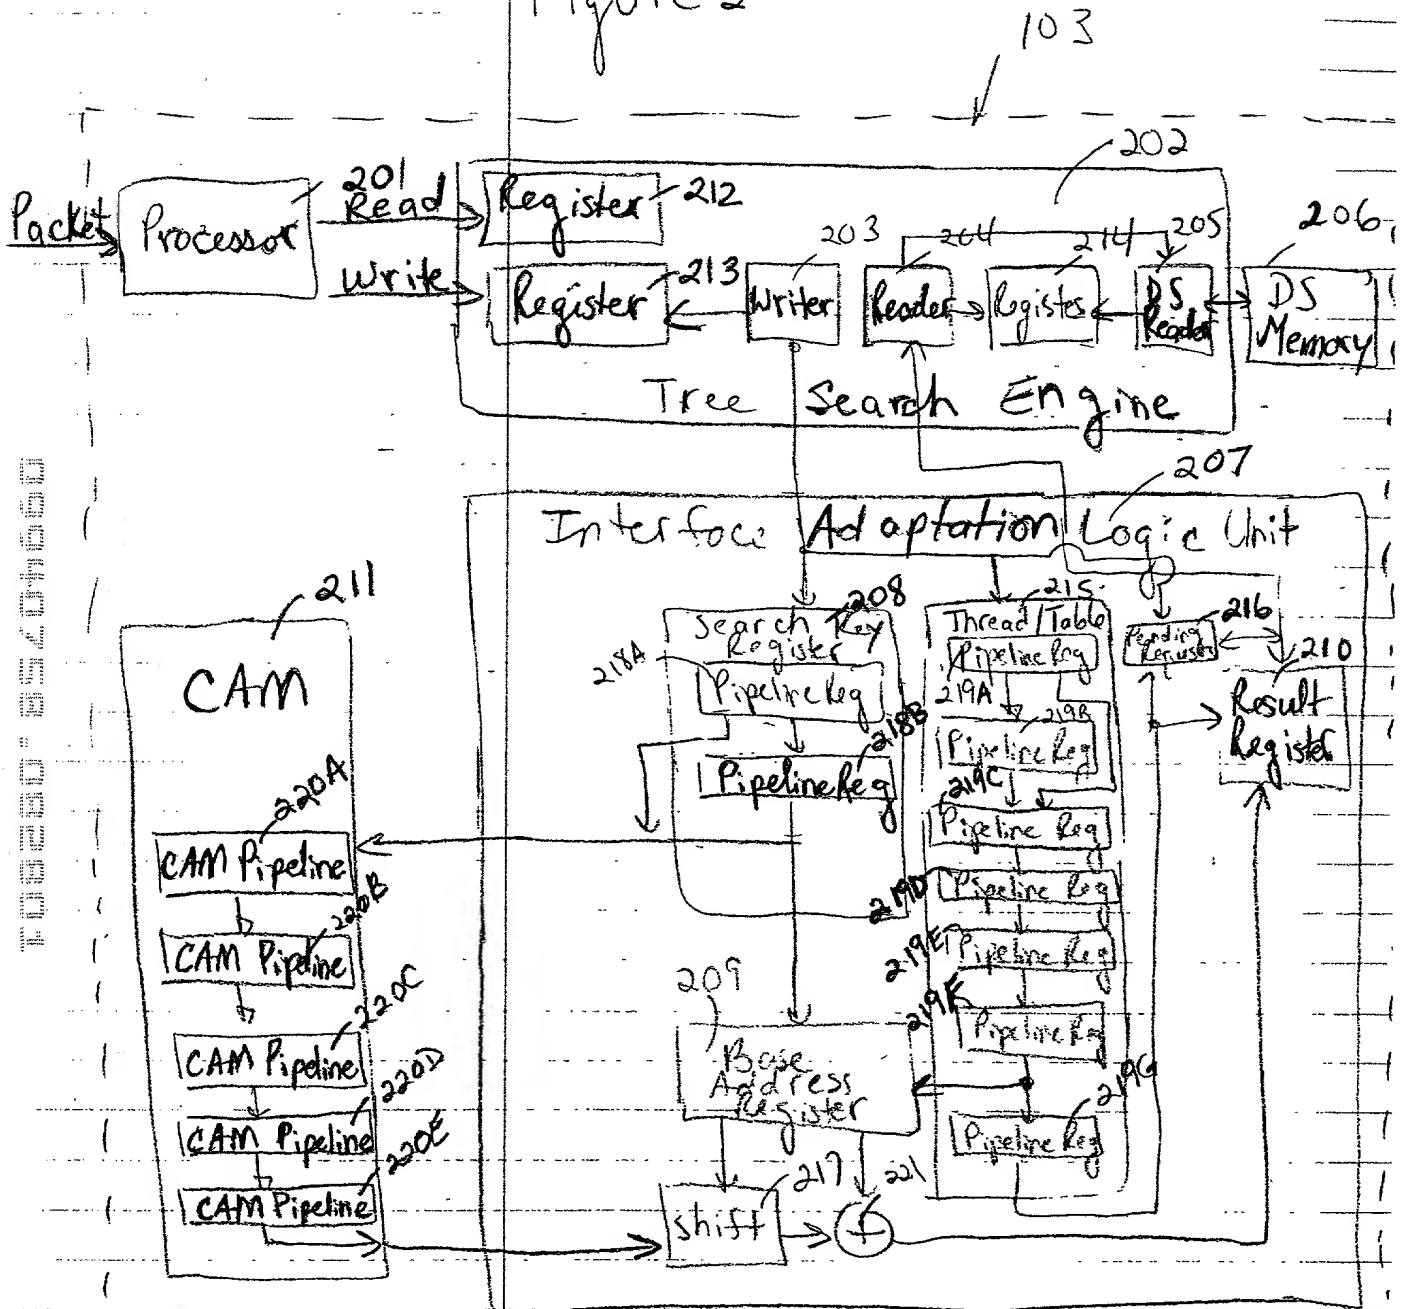 Figure 2
103
202
201
Packet
Processor
Read
Write
Register
212
Register
213
203
Writer
204
Reader
214
Register
205
DS
Reader
206
DS
Memory
Tree Search Engine
207
Interface Adaptation Logic Unit
211
CAM
208
Search Key
Register
218A
Pipeline Reg
218B
Pipeline Reg
215
Thread/Table
Pipeline Reg
219A
219B
Pipeline Reg
219C
Pipeline Reg
219D
Pipeline Reg
219E
Pipeline Reg
219F
Pipeline Reg
219G
Pipeline Reg
216
Pending
Requests
210
Result
Register
220A
CAM Pipeline
220B
CAM Pipeline
220C
CAM Pipeline
220D
CAM Pipeline
220E
CAM Pipeline
209
Base
Address
Register
217
shift
221
+